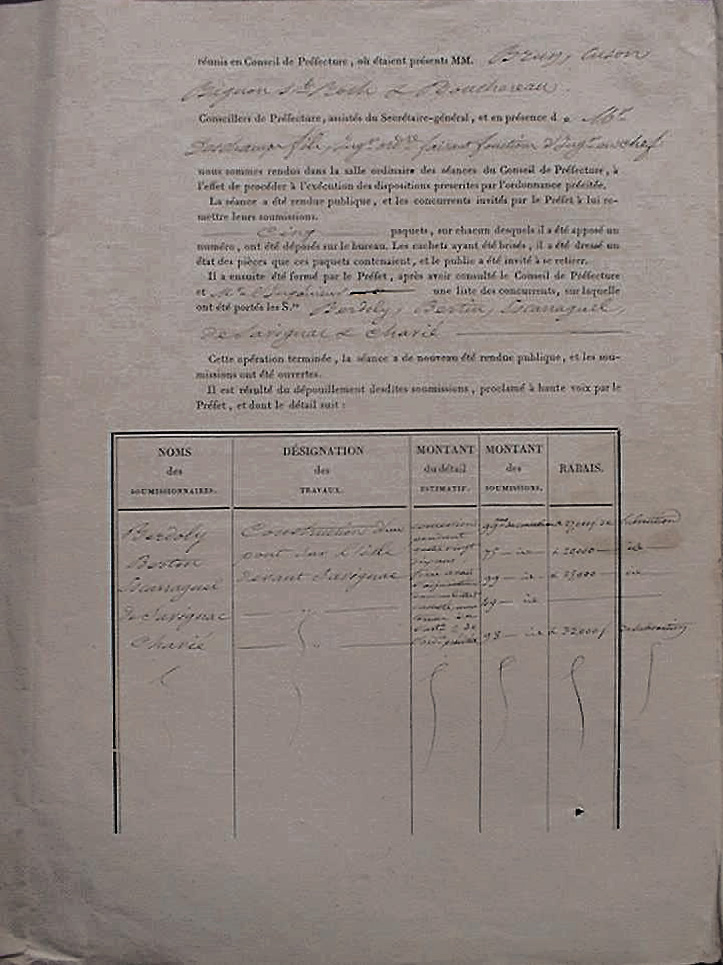 réunis en Conseil de Préfecture, où étaient présents MM. Brun, Cuson
Bignon Ste Roth & Bouchereau.
Conseillers de Préfecture, assistés du Secrétaire-général, et en présence d e Mr
Deschamps fils, Ingr ordre faisant fonction d'Ingr en chef
nous sommes rendus dans la salle ordinaire des séances du Conseil de Préfecture, à
l'effet de procéder à l'exécution des dispositions prescrites par l'ordonnance précitée.
La séance a été rendue publique, et les concurrents invités par le Préfet à lui re-
mettre leurs soumissions.
Cinq paquets, sur chacun desquels il a été apposé un
numéro, ont été déposés sur le bureau. Les cachets ayant été brisés, il a été dressé un
état des pièces que ces paquets contenaient, et le public a été invité à se retirer.
Il a ensuite été formé par le Préfet, après avoir consulté le Conseil de Préfecture
et Mr l'Ingénieur une liste des concurrents, sur laquelle
ont été portés les S.rs Berdoly, Bertin, Escarraguel,
de Savignac & Charié
Cette opération terminée, la séance a de nouveau été rendue publique, et les sou-
missions ont été ouvertes.
Il est résulté du dépouillement desdites soumissions, proclamé à haute voix par le
Préfet, et dont le détail suit :
NOMS des SOUMISSIONNAIRES.
DÉSIGNATION des TRAVAUX.
MONTANT du détail ESTIMATIF.
MONTANT des SOUMISSIONS.
RABAIS.
Berdoly Construction d'un concession 99 subvention
Bertin pont sur l'Isle pendant 75 — id & 20000 — id
Escarraguel devant Savignac 99 — id & 25,000 — id
de Savignac 69 — id
Charié 98 — id & 32000f de subvention